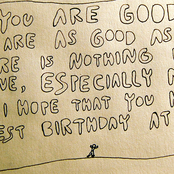 YOU ARE GOOD
ARE AS GOOD AS
RE IS NOTHING
VE, ESPECIALLY
I HOPE THAT YOU H
EST BIRTHDAY AT